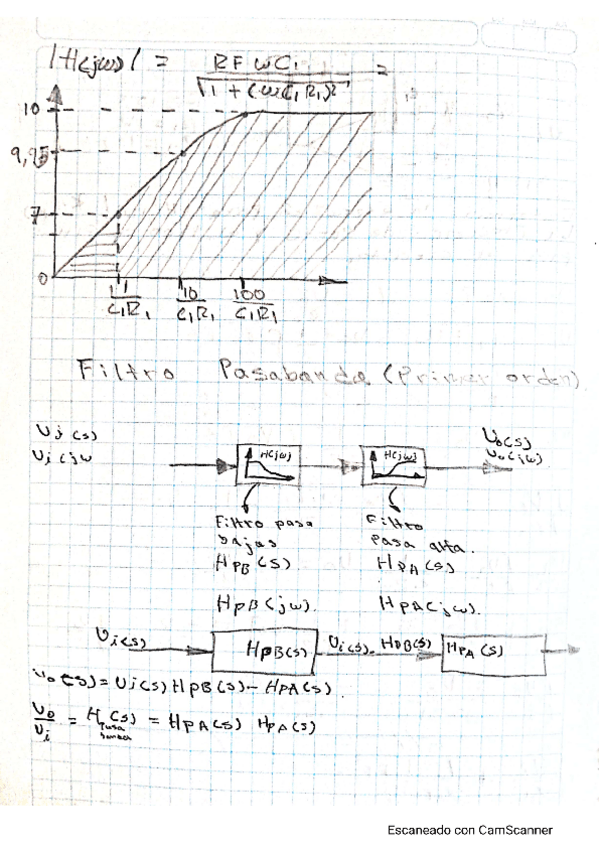 |H(jω)| = RF ω C₁ / √(1 + (ωC₁R₁)²) =
10
9,95
7
0
1/C₁R₁ 10/C₁R₁ 100/C₁R₁
Filtro Pasabanda (Primer orden)
Ui(s)
Ui(jω
Uo(s)
Uo(jω)
H(jω) H(jω)
Filtro pasa bajas
HPB(s)
HPB(jω).
Filtro pasa alta.
HPA(s)
HPA(jω).
Ui(s) HPB(s) Ui(s)- HPB(s) HPA(s)
Uo(s)= Ui(s) HPB(s)- HPA(s)
Uo/Ui = H(s) pasa banda = HPA(s) HPA(s)
Escaneado con CamScanner